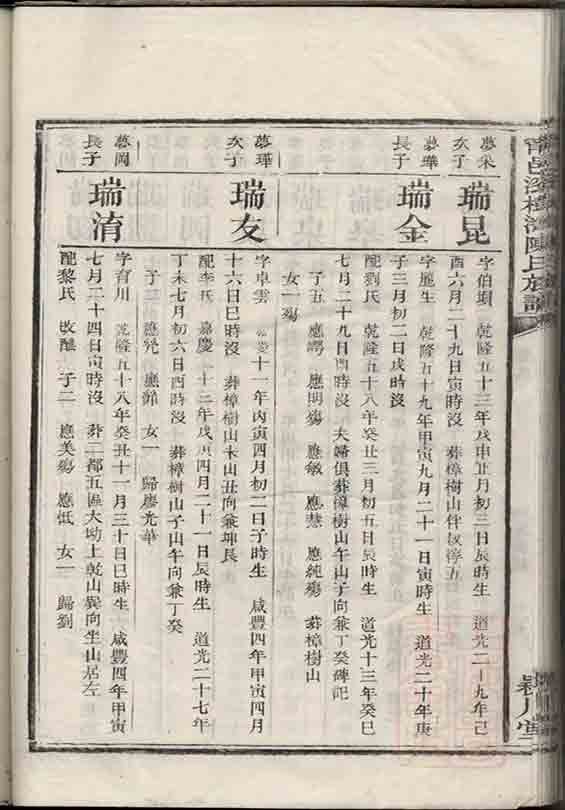 夢采
次子
瑞昆
字伯塤 乾隆五十三年戊申正月初三日辰時生 道光二十九年己
酉六月二十九日寅時沒 葬樟樹山伴叔淳五
夢華
長子
瑞金
字麗生 乾隆五十九年甲寅九月二十一日寅時生 道光二十年庚
子三月初二日戌時沒
配劉氏 乾隆五十八年癸丑三月初五日辰時生 道光十三年癸巳
七月二十九日酉時沒 夫婦俱葬樟樹山午山子向兼丁癸碑記
子五 應諤 應明殤 應敏 應慧 應純殤 葬樟樹山
女一殤
夢璋
次子
瑞友
字卓雲 嘉慶十一年丙寅四月初二日子時生 咸豐四年甲寅四月
十六日巳時沒 葬樟樹山未山丑向兼坤艮
配李氏 嘉慶十二年 四月二十一日辰時生 道光二十七年
丁未七月初六日酉時沒 葬樟樹山子山午向兼丁癸
子二 女一 歸廖光華
夢岡
長子
瑞淯
字育川 乾隆五十八年癸丑十一月三十日巳時生 咸豐四年甲寅
七月二十四日寅時沒 葬二都五區大坳上乾山巽向坐山居左
配黎氏 改醮 子二 應美殤 女一 歸劉
陳氏族譜
潁川堂